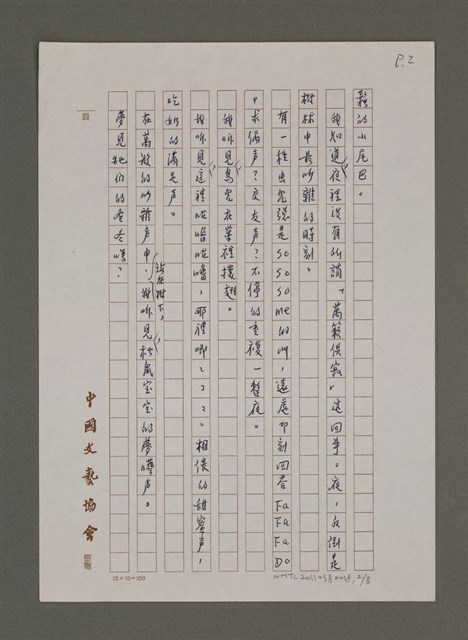 P.2
鬆的小尾巴。
我知道夜裡沒有所謂「萬籟俱寂」這回事。夜,反倒是
樹林中最吵雜的時刻。
有一種蟲兒總是so so so me的叫,遠處即刻回答Fa Fa Fa Do
,求偶声?交友声?不停的重複一整夜。
我聽見鳥兒在葉裡撲翅。
我聽見這裡嘰嚕嘰嚕,那裡唧ㄑㄑㄑ。相偎的甜蜜声,
吃奶的滿足声。
在萬般的吵雜声中,我站在樹下,聽見松鼠宝宝的夢囈声。
夢見牠们的冬冬嗎?
中國文藝協會
25×10=250
NMTL20110380018, 2/8